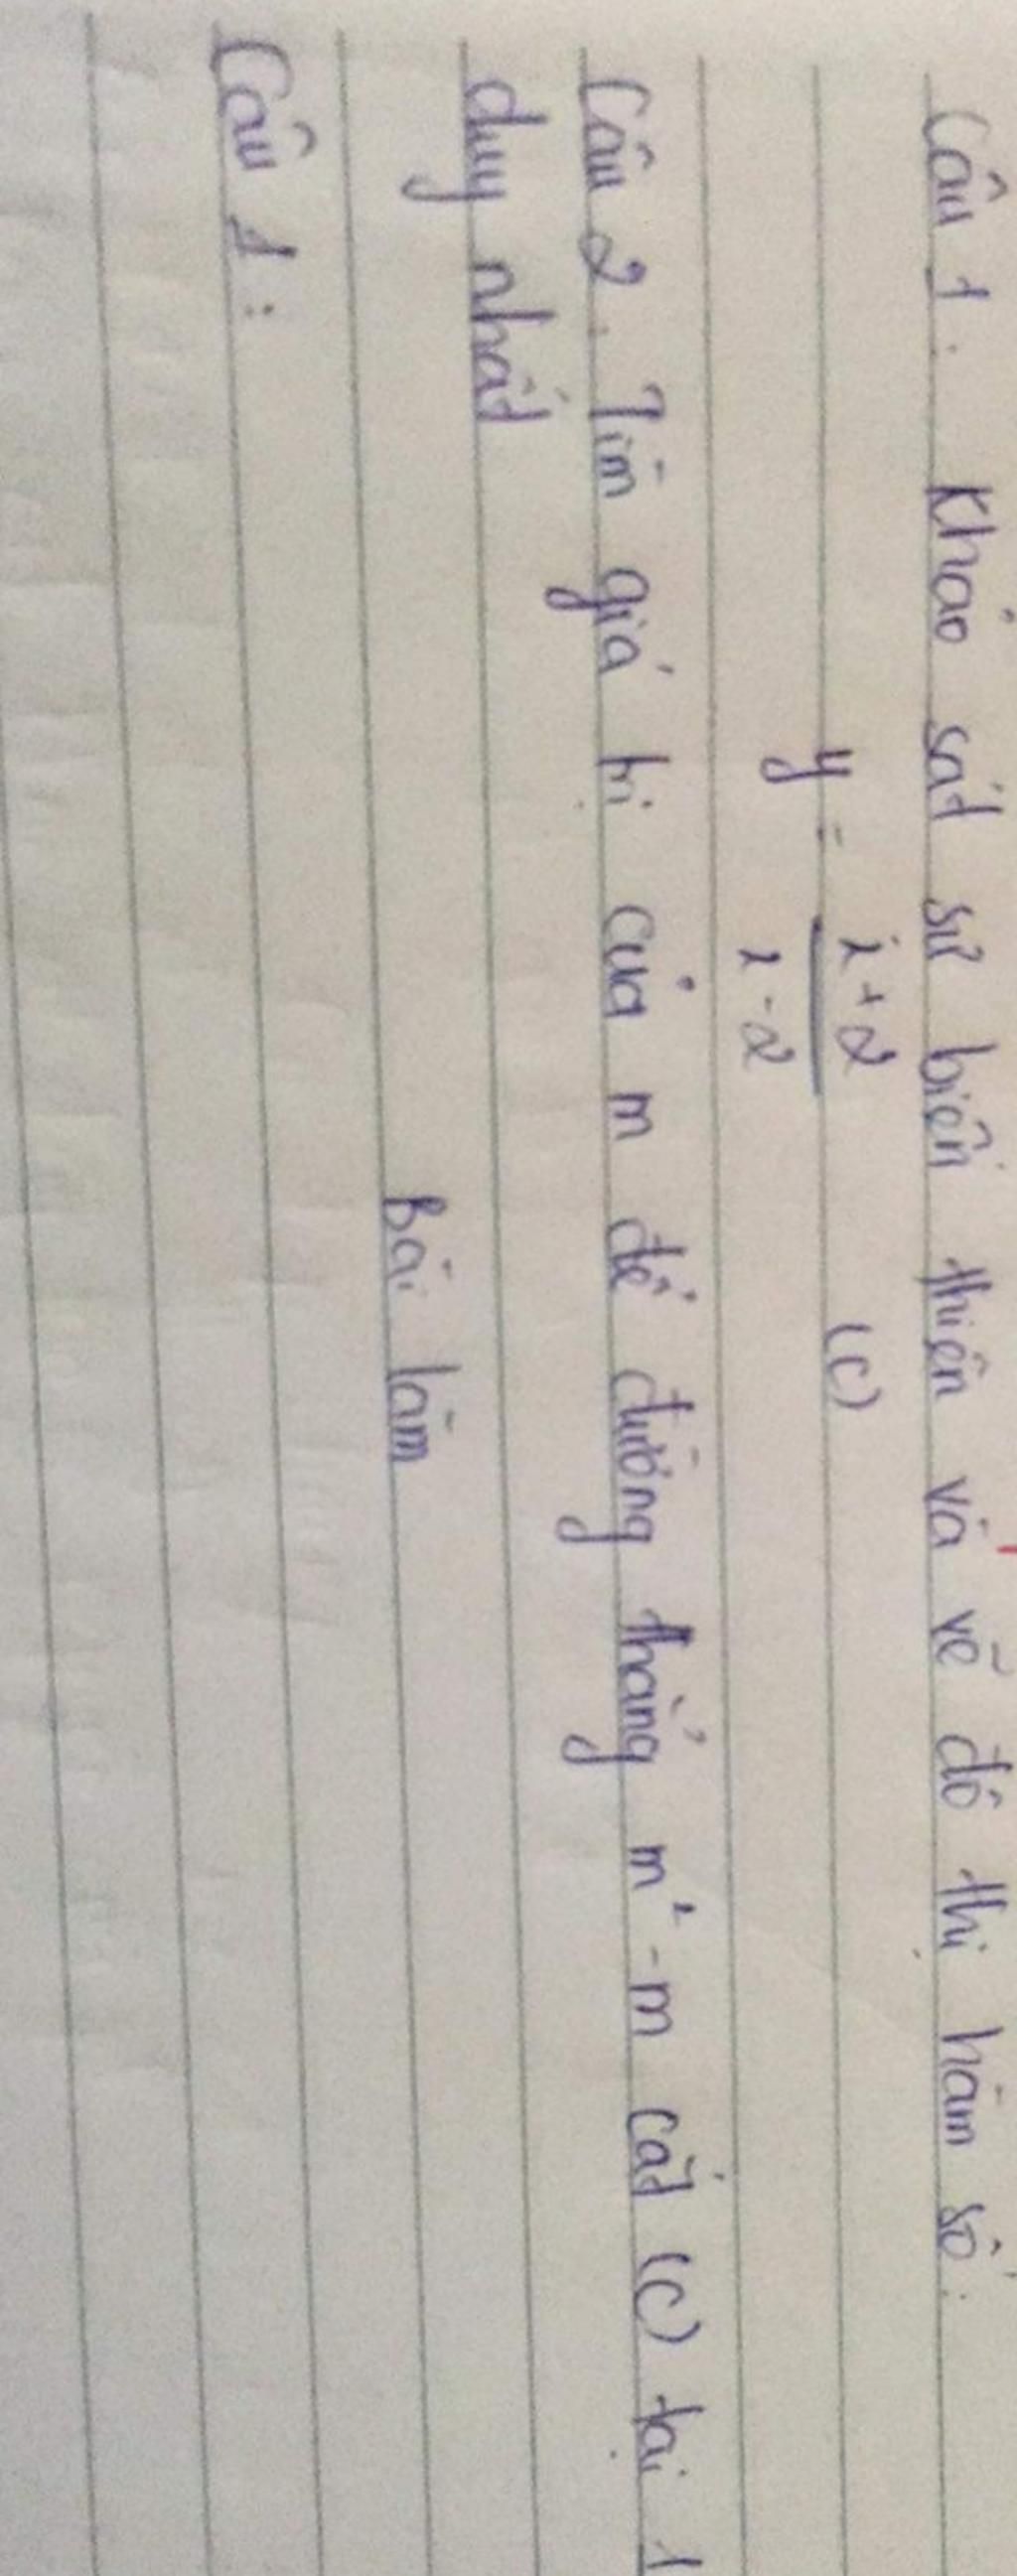 Câu 1. Khảo sát sự biến thiên và vẽ đồ thị hàm số:
y = x+2 / x-2 (C)
Câu 2. Tìm giá trị của m để đường thẳng m² - m cắt (C) tại 1
duy nhất
Bài làm
Câu 1: